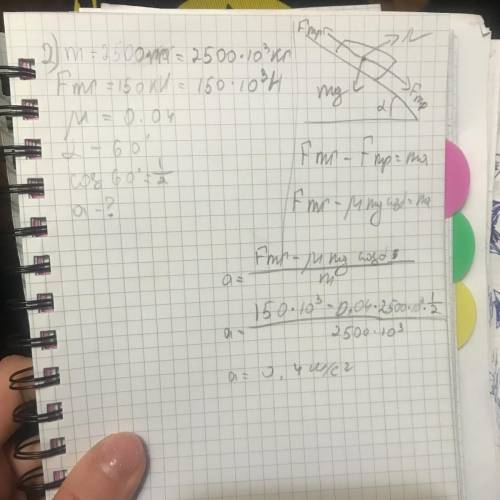 2) m = 2500 = 2500·10³кг
Fтяг = 150кН = 150·10³Н
μ = 0.04
α = 60°
cos 60° = 1/2
a - ?
Fтяг N
mg Fтр
α
Fтяг - Fтр = ma
Fтяг - μ mg cosα = ma
a = (Fтяг - μ mg cosα)/m
a = (150·10³ - 0.04·2500·10³·1/2)/(2500·10³)
a = 0,4 м/с²